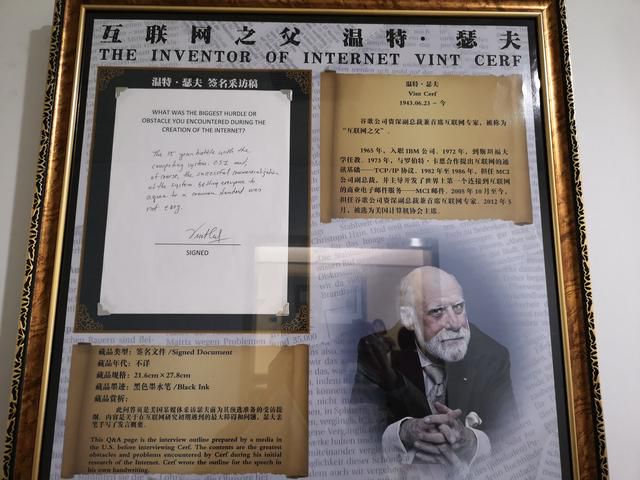 互联网之父 温特·瑟夫
THE INVENTOR OF INTERNET VINT CERF
温特·瑟夫 签名采访稿
WHAT WAS THE BIGGEST HURDLE OR
OBSTACLE YOU ENCOUNTERED DURING THE
CREATION OF THE INTERNET?
The 15 year battle with the
competing system OSI and,
of course, the successful commercialization
of the system. Getting everyone to
agree to a common standard was
not easy.
Vint Cerf
SIGNED
温特·瑟夫
Vint Cerf
1943.06.23 - 今
谷歌公司资深副总裁兼首席互联网专家，被称为
“互联网之父”。
1965年，入职IBM公司。1972年，到斯坦福大
学任教。1973年，与罗伯特·卡恩合作提出互联网的通
讯基础——TCP/IP协议。1982年至1986年，担任MCI
公司副总裁，并主导开发了世界上第一个连接到互联网
的商业电子邮件服务——MCI邮件。2005年10月至今，
担任谷歌公司资深副总裁兼首席互联网专家。2012年5
月，被选为美国计算机协会主席。
藏品类型：签名文件/Signed Document
藏品年代：不详
藏品规格：21.6cm×27.8cm
藏品墨迹：黑色墨水笔/Black Ink
藏品赏析：
此问答页是美国某媒体采访瑟夫前为其预选准备的受访提
纲，内容是关于在互联网研究初期遇到的最大障碍和问题，瑟夫亲
笔手写了发言概要。
This Q&A page is the interview outline prepared by a media in
the U.S. before interviewing Cerf. The contents are the greatest
obstacles and problems encountered by Cerf during his initial
research of the Internet. Cerf wrote the outline for the speech in
his own handwriting.